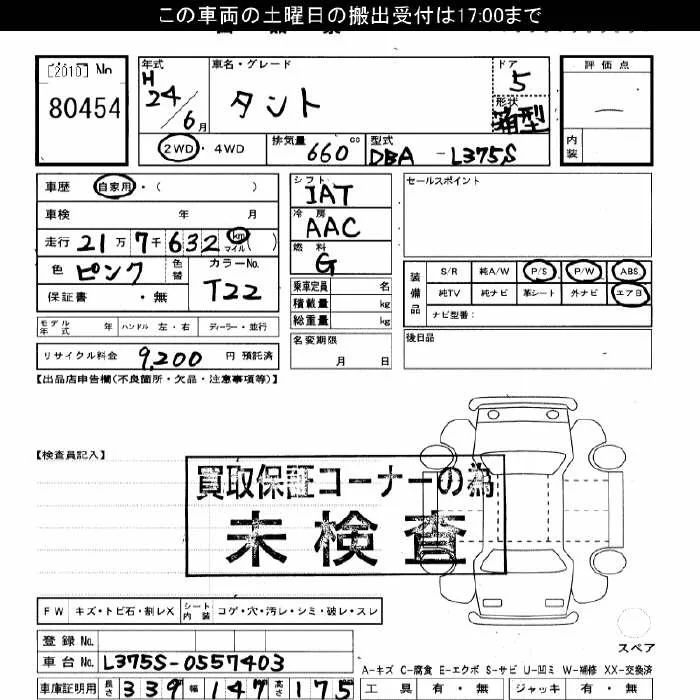 この車両の土曜日の搬出受付は17:00まで
[2010] No
80454
年式
H
24/6月
車名・グレード
タント
ドア
5
形状
箱型
評価点
内装
2WD・4WD
排気量 660 cc
型式 DBA-L375S
車歴 自家用・( )
車検 年 月
走行 21万7千632 km マイル ( )
色 ピンク 色替 カラーNo. T22
保証書 ・無
モデル年式 年 ハンドル 左・右 ディーラー・並行
リサイクル料金 9,200 円 預託済
シフト IAT
冷房 AAC
燃料 G
乗車定員 名
積載量 kg
総重量 kg
名変期限
月 日
セールスポイント
装備品
S/R 純A/W P/S P/W ABS
純TV 純ナビ 革シート 外ナビ エアB
ナビ型番:
後日品
【出品店申告欄(不良箇所・欠品・注意事項等)】
【検査員記入】
買取保証コーナーの為
未検査
FW キズ・トビ石・割レX シート内装 コゲ・穴・汚レ・シミ・破レ・スレ
登録No.
車台No. L375S-0557403
車庫証明用 長さ 339 幅 147 高さ 175
スペア
A-キズ C-腐食 E-エクボ S-サビ U-凹ミ W-補修 XX-交換済
工具 有・無 ジャッキ 有・無